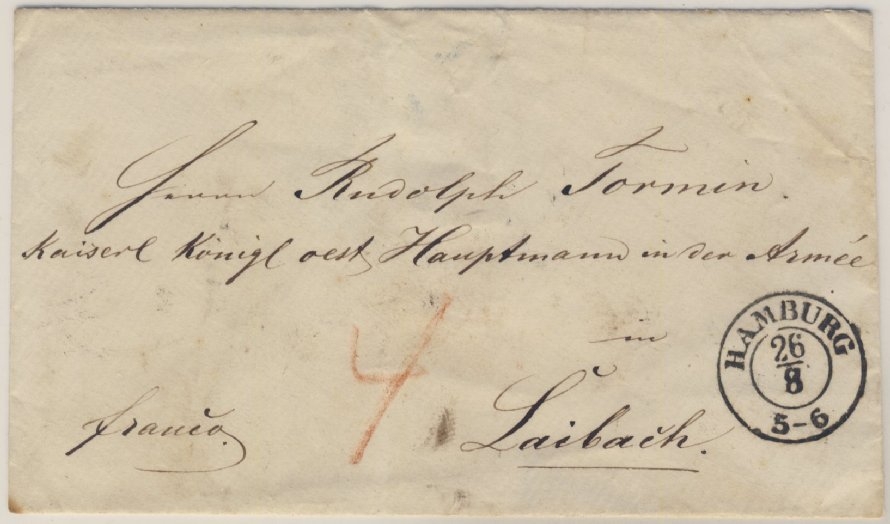 Herrn Rudolph Tormin.
Kaiserl Königl oest Hauptmann in der Armée
in
Laibach.
franco.
4
HAMBURG
26/8
5-6